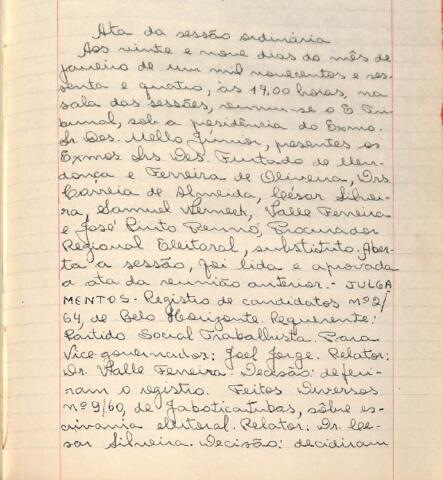 Ata da sessão ordinária
Aos vinte e nove dias do mês de
janeiro de um mil novecentos e ses-
senta e quatro, às 14,00 horas, na
sala das sessões, reuniu-se o E. Tri-
bunal, sob a presidência do Exmo.
Sr. Des. Mello Júnior, presentes os
Exmos Srs. Des. Furtado de Men-
donça e Ferreira de Oliveira, Drs.
Correia de Almeida, César Silvei-
ra, Samuel Werneck, Valle Ferreira
e José Pinto Rennó, Procurador
Regional Eleitoral, substituto. Aber-
ta a sessão, foi lida e aprovada
a ata da reunião anterior. - JULGA
MENTOS - Registro de candidatos nº 2/
64, de Belo Horizonte. Requerente:
Partido Social Trabalhista. Para
Vice-governador: Joel Jorge. Relator:
Dr. Valle Ferreira. Decisão: deferi-
ram o registro. Feitos Diversos
nº 9/60, de Jaboticatubas, sôbre es-
crivania eleitoral. Relator: Dr. Cé-
sar Silveira. Decisão: decidiram